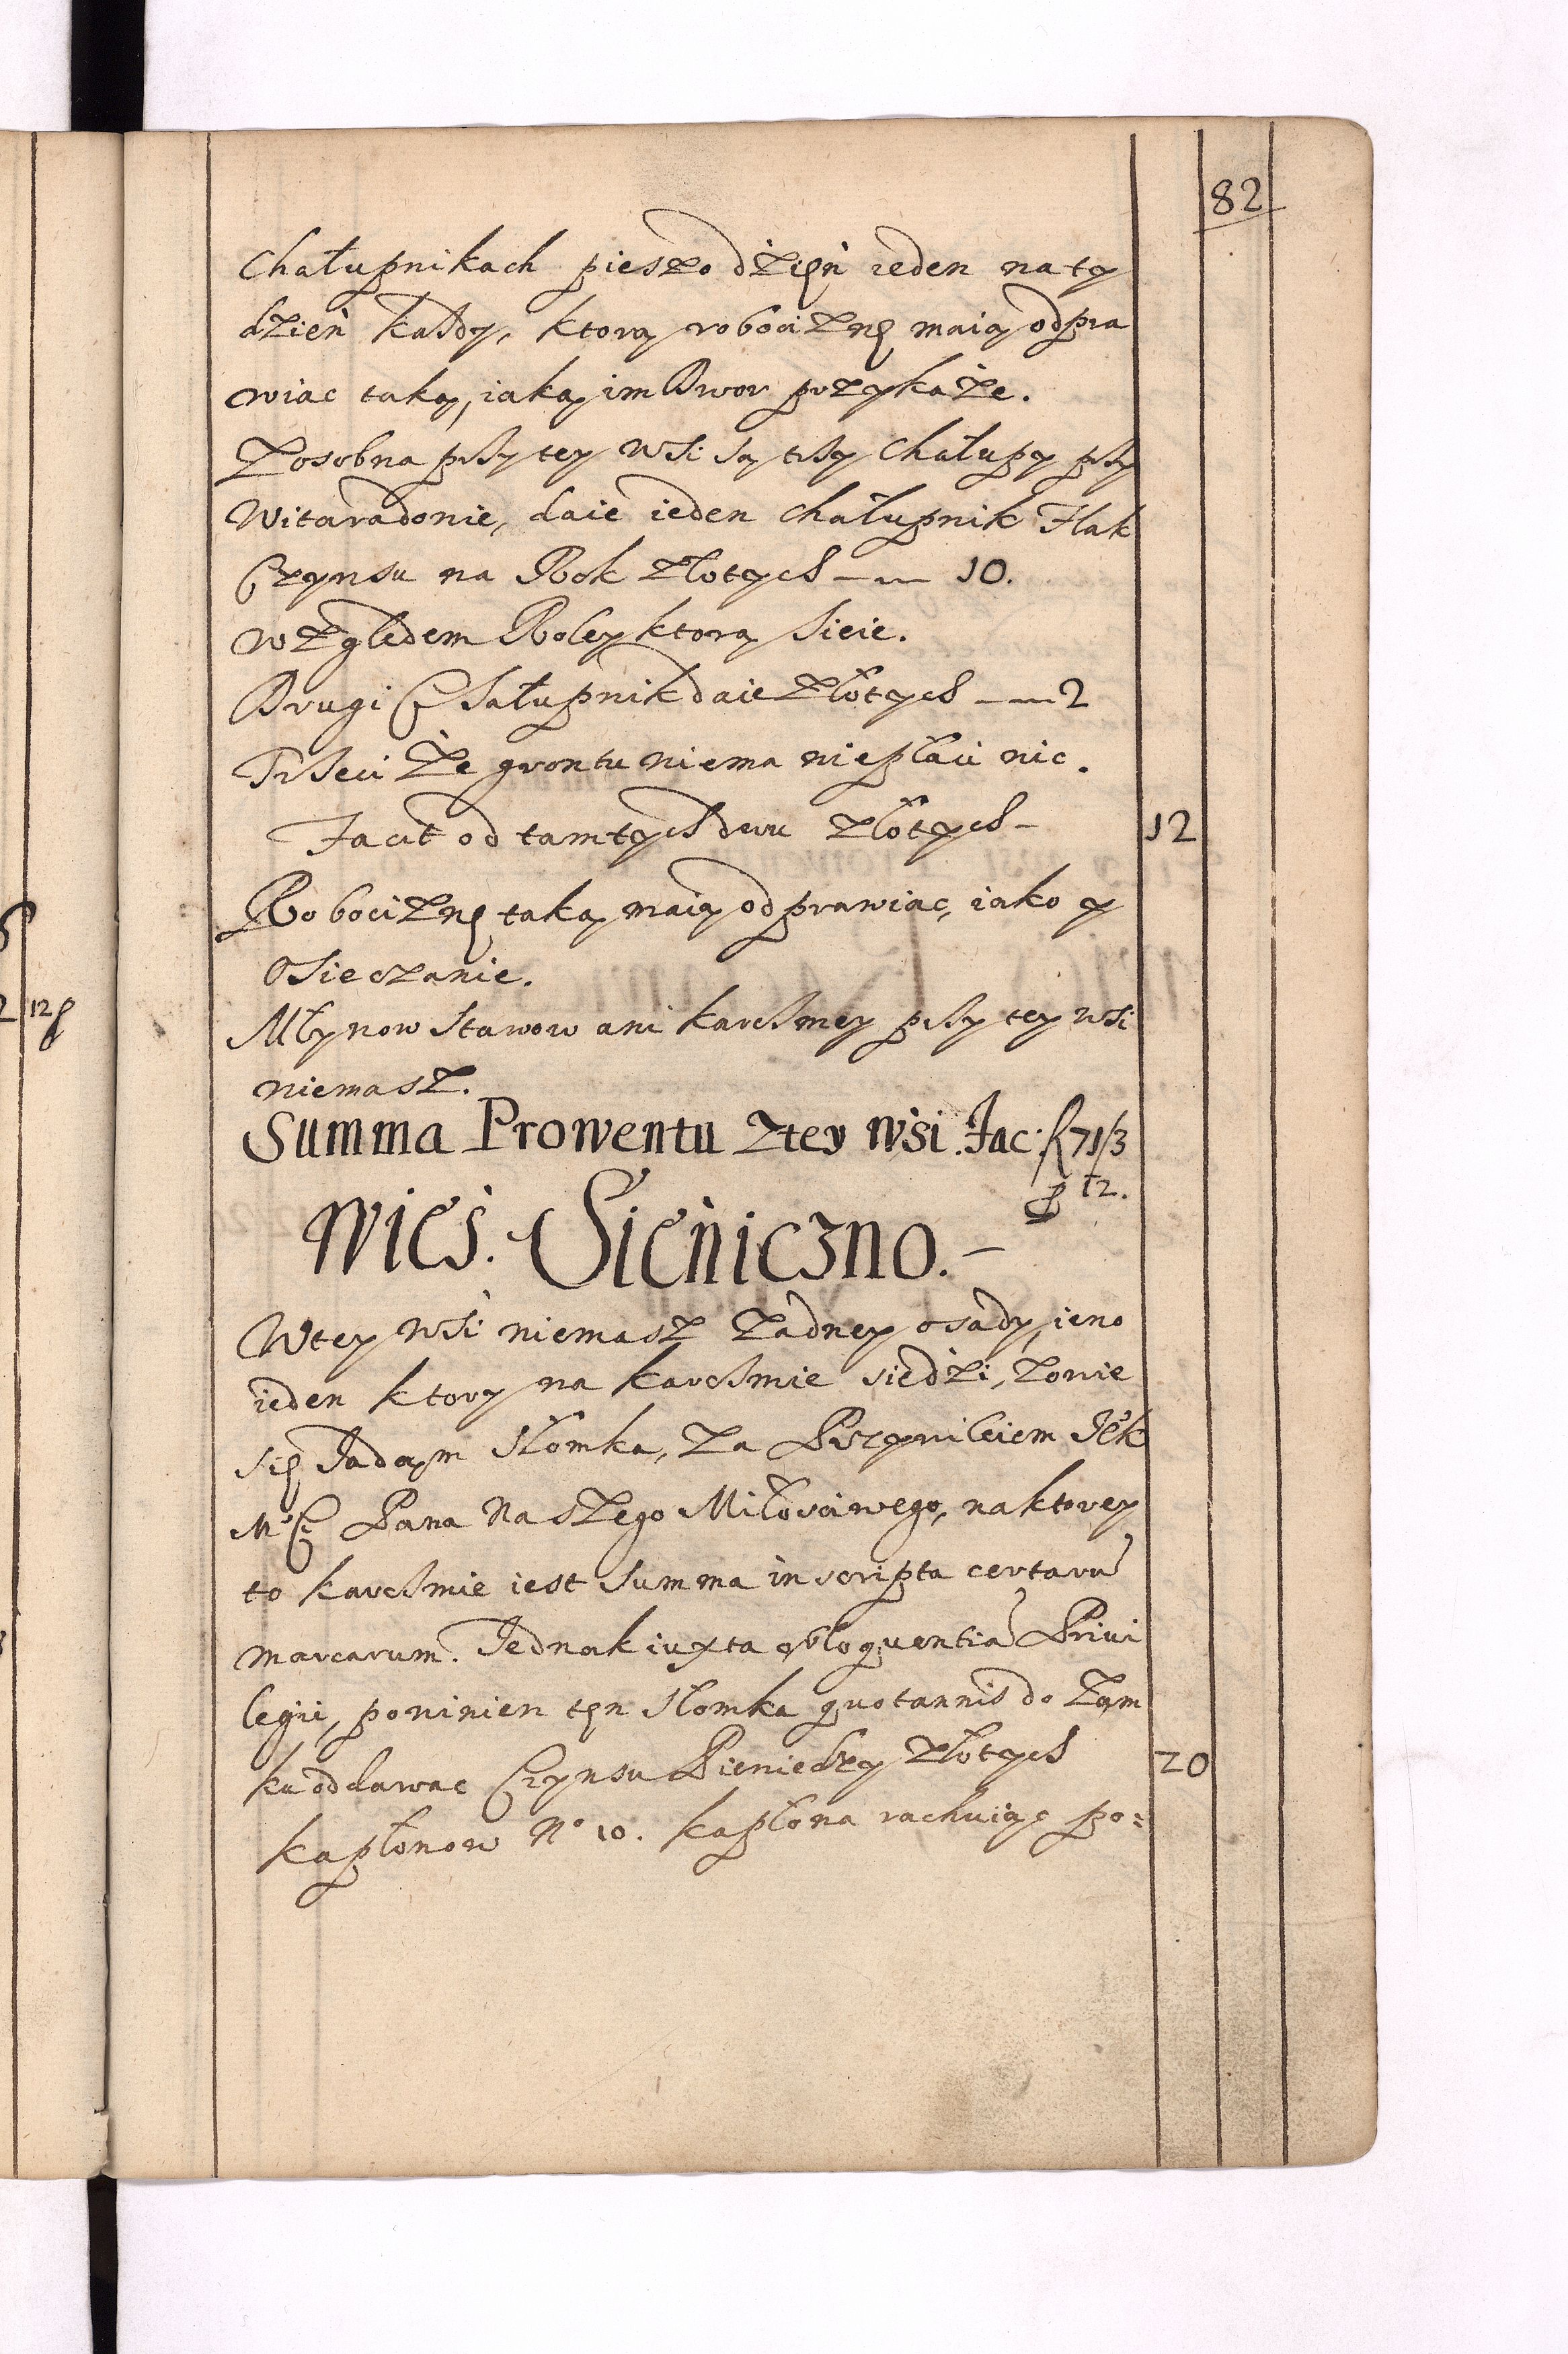 82
Chałupnikach pieszo dzięń ieden na ty
dzień każdy, ktorą robociznę maią odpra
wiac taką, iaką im Dwor przykaże.
Zosobna przy tey wsi są trzy Chałupy przy
Witaradowie, daie ieden Chałupnik Flak
Czynsu na Rok złotych — 10.
względem Roley ktorą sieie.
Drugi Chałupnik daie złotych — 2
Trzeci że grontu niema niepłaci nic.
Facit od tamtych dwu złotych - 12
Robociznę taką maią odprawiac, iako y
Osieczanie.
Młynow Stawow ani karczmey przy tey wsi
niemasz.
Summa Prowentu z tey wsi. Fac: f 71/3
g 12.
Wieś. Sieniczno. —
W tey wsi niemasz żadney osady, ieno
ieden ktory na karczmie siedzi, zowie
się Jadąm Słomka, za Przywileiem Jek
Mci Pana Naszego Miłosciwego, na ktorey
to karczmie iest Summa inscripta certaru
marcarum. Jednak iuxta obloquentia Privi
legii, powinien tęn Słomka quotannis do Zam
ku oddawac Czynsu Pieniędzy złotych 20
kapłonow No 10. kapłona rachuiąc po=
12 g